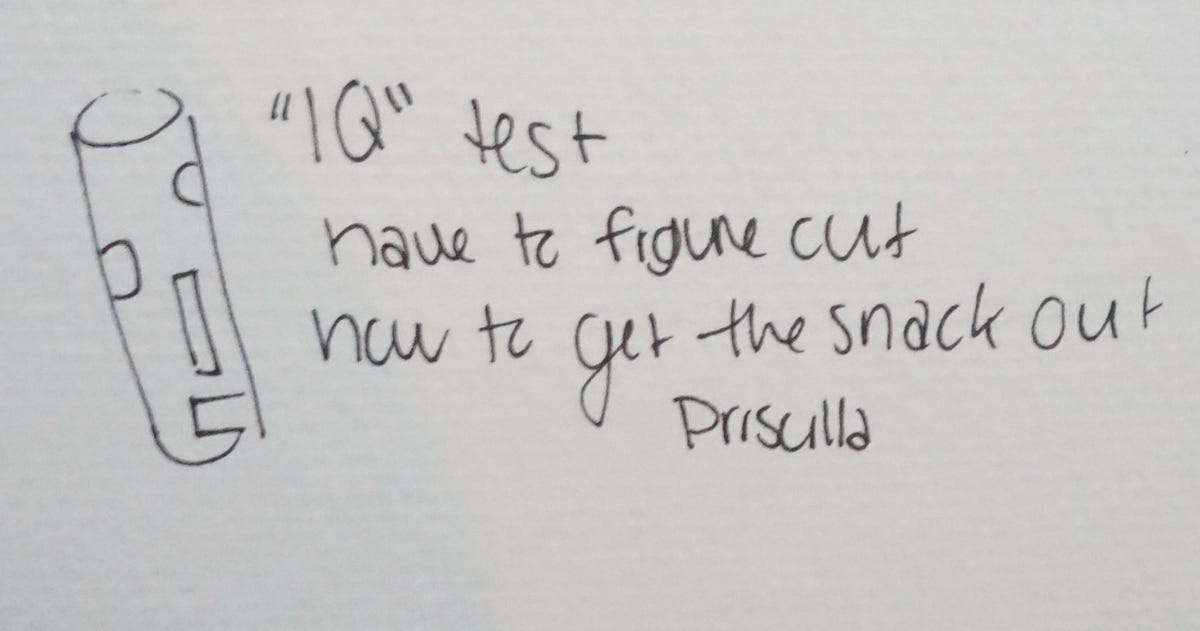 "IQ" test
have to figure out
how to get the snack out
Priscilla